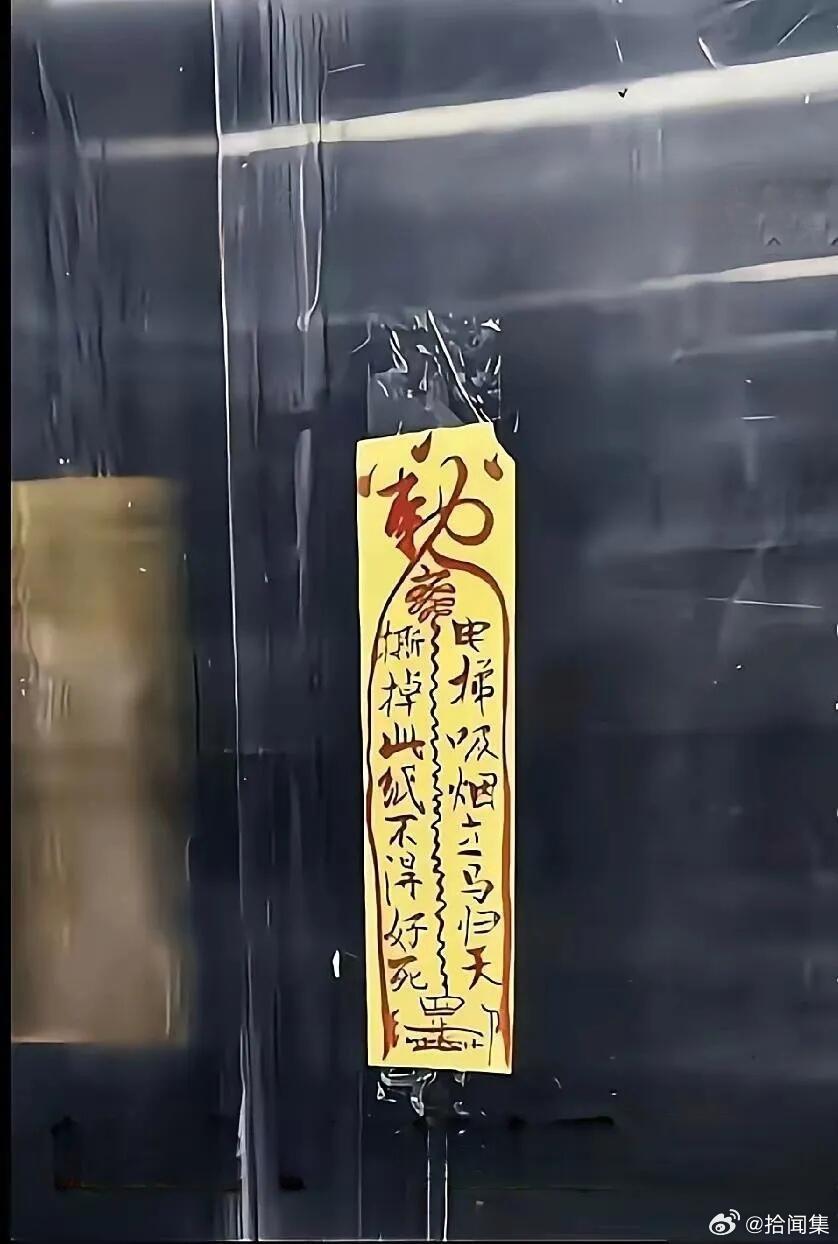 敕
电梯吸烟立马归天
撕掉此纸不得好死
@拾闻集